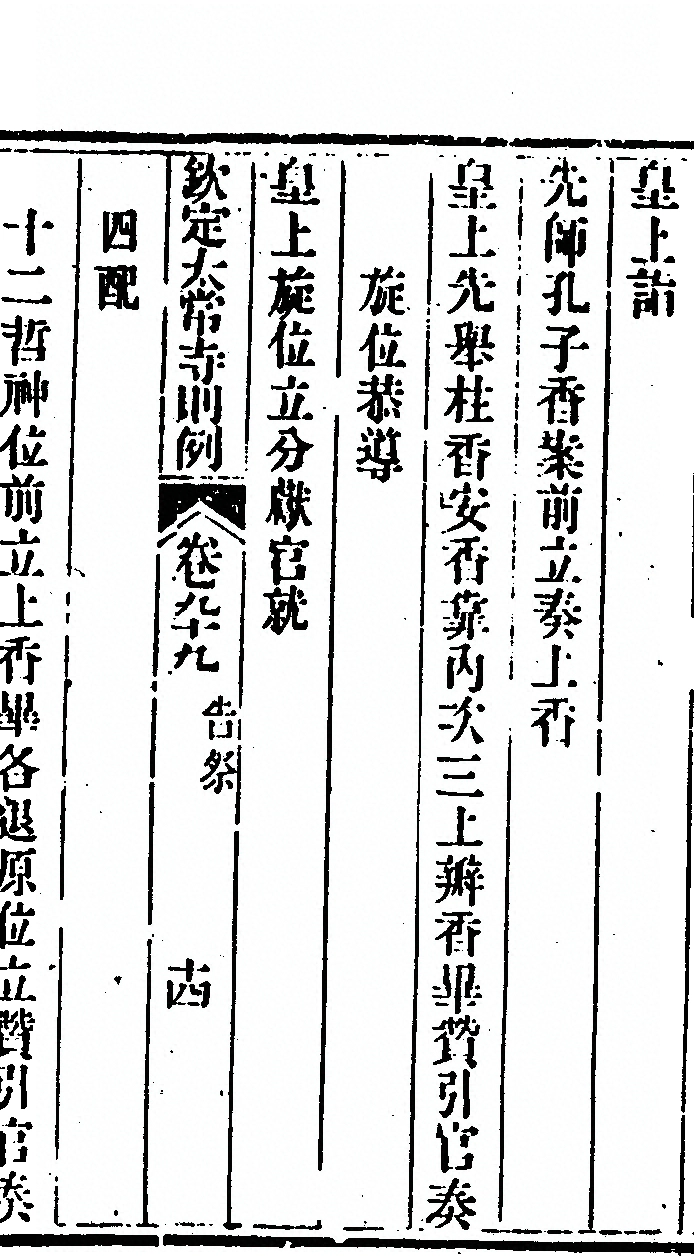 皇上詣
先師孔子香案前立奏上香
皇上先舉柱香安香靠內次三上瓣香畢贊引官奏
旋位恭導
皇上旋位立分獻官就
欽定太常寺則例
卷九十九
告祭
十四
四配
十二哲神位前立上香畢各退原位立贊引官奏